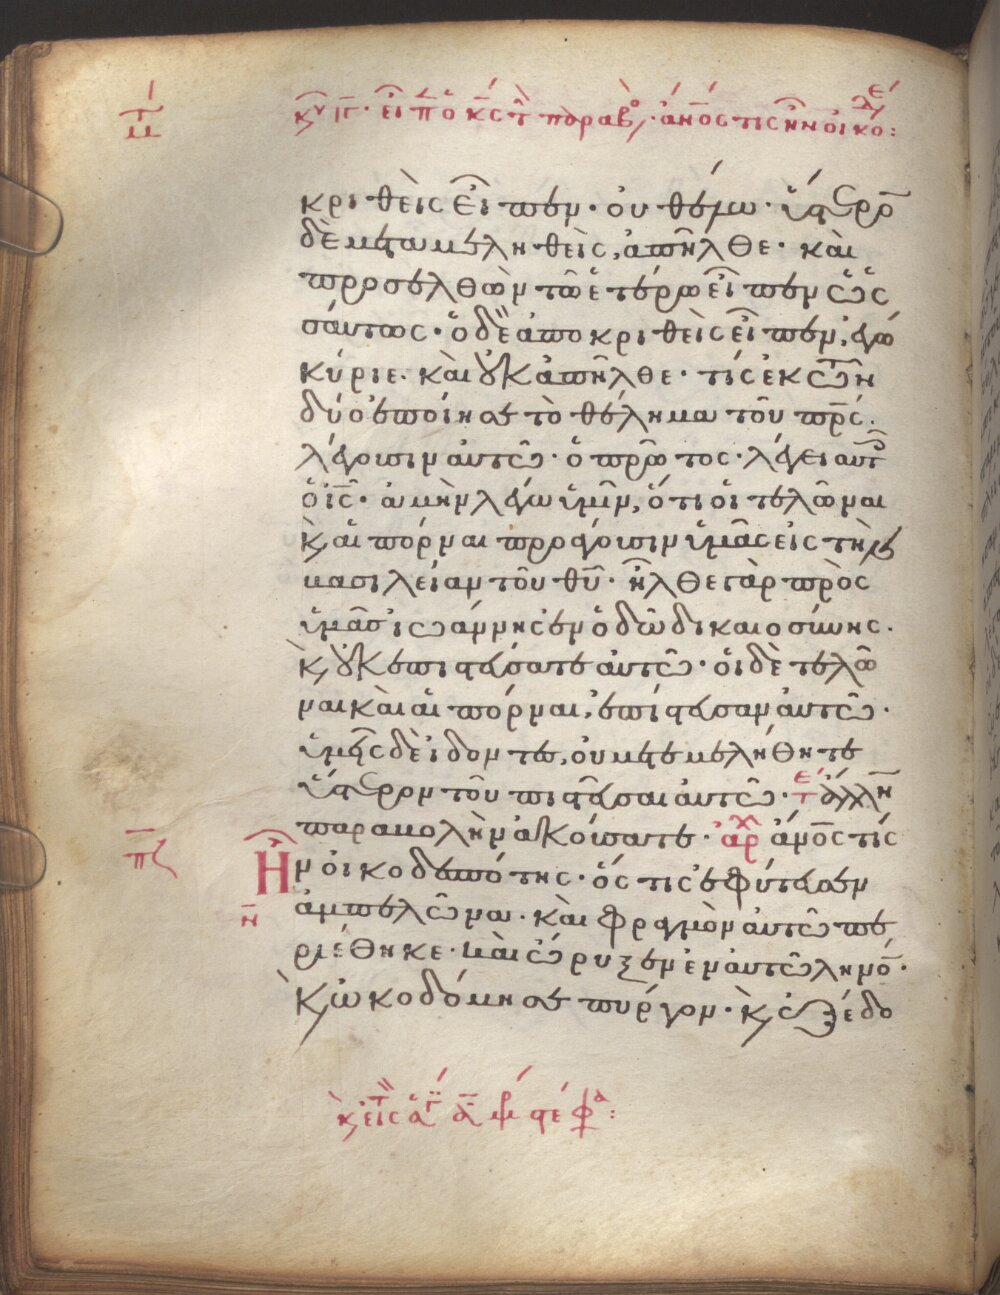 κυ ιγ· εἶπ ὁ κς τ παραβο· ἄνος τις ἦν οἰκο:
κριθεὶς εἶπεν· οὐ θέλω· ὕστερο
δὲ μεταμεληθεὶς, ἀπῆλθε· καὶ
προσελθὼν τῶ ἑτέρω εἶπεν ὡς
σάυτως· ὁ δὲ ἀποκριθεὶς εἶπεν, ἐγὼ
κύριε· καὶ οὐκ ἀπῆλθε· τίς ἐκ τῶν
δύο ἐποίησε τὸ θέλημα τοῦ πρς·
λέγουσιν αὐτῶ· ὁ πρῶτος· λέγει αὐτοῖς
ὁ ις· ἀμὴν λέγω ὑμῖν, ὅτι οἱ τελῶναι
κ αἱ πόρναι προάγουσιν ὑμᾶς εἰς τὴν
βασιλείαν τοῦ θυ· ἦλθε γὰρ πρὸς
ὑμᾶς ἰωάννης ἐν ὁδῶ δικαιοσύνης·
κ οὐκ ἐπιστεύσατε αὐτῶ· οἱ δὲ τελῶ
ναι καὶ αἱ πόρναι, ἐπίστευσαν αὐτῶ·
ὑμεῖς δὲ ἰδόντες, οὐ μετεμελήθητε
ὕστερον τοῦ πιστεῦσαι αὐτῶ· τε ἄλλην
παραβολὴν ἀκούσατε· ἀρχ ἄνος τίς
πζ
Ἦν οἰκοδεσπότης· ὅς τις ἐφύτευσεν
ν
ἀμπελῶνα· καὶ φραγμὸν αὐτῶ πε
ριέθηκε· καὶ ὤρυξεν ἐν αὐτῶ ληνό·
κ ὠκοδόμησε πύργον· κ ἐξέδο